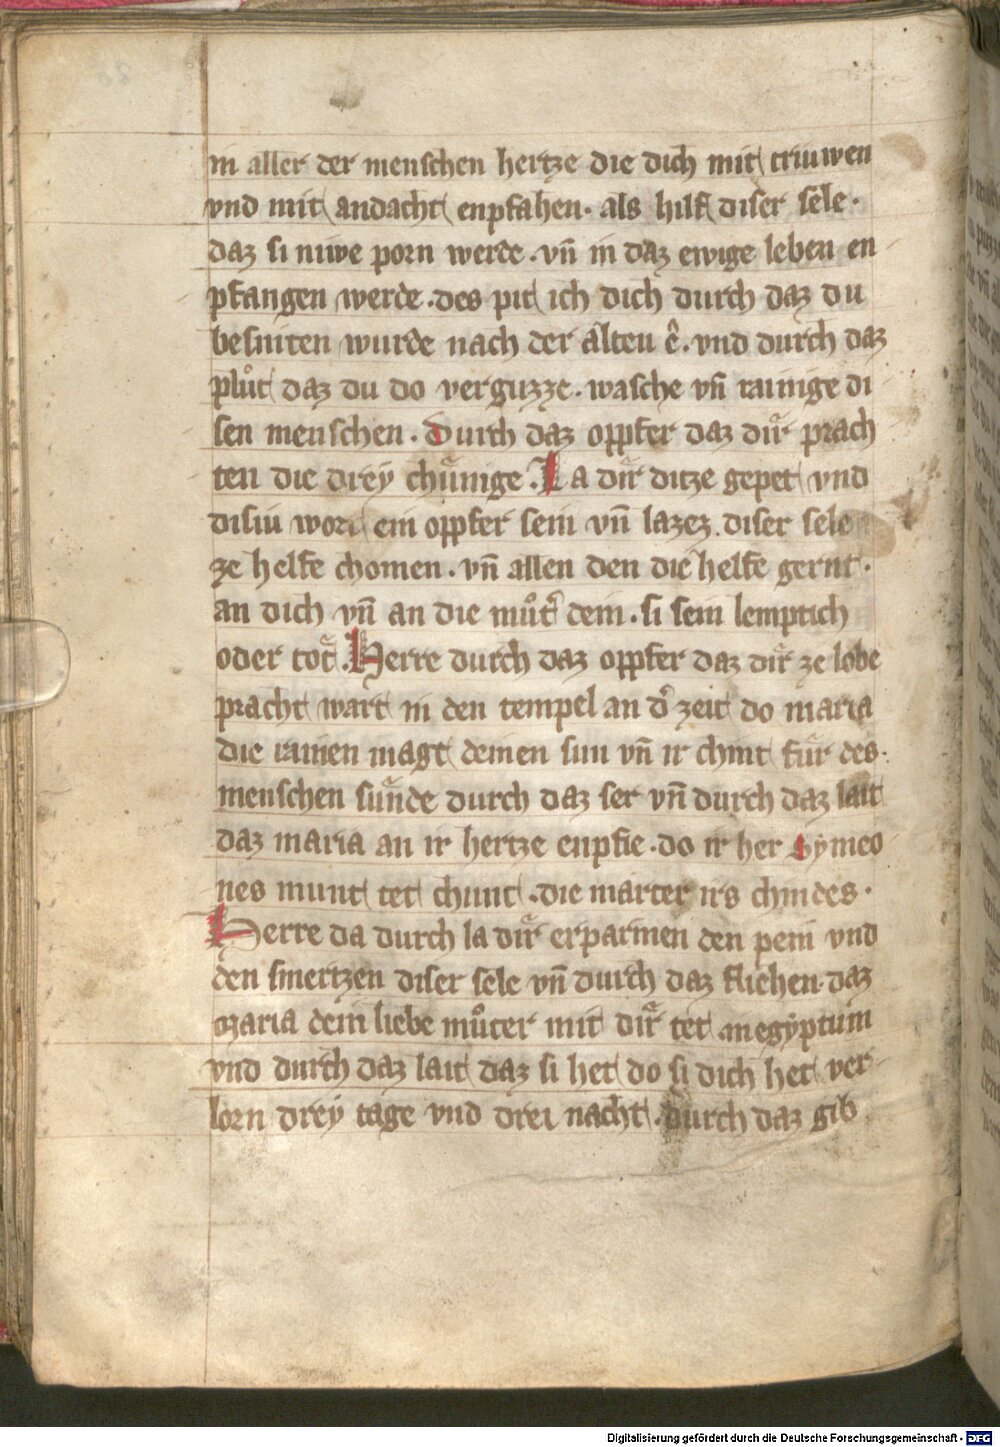 in aller der menschen hertze die dich mit triuwen
vnd mit andacht enpfahen· als hilf diser sele·
daz si niwe porn werde·vn̄ in daz ewige leben en
pfangen werde·des pit ich dich durch daz du
besniten wurde nach der alten ê·vnd durch daz
plůt daz du do verguzze·wasche vn̄ rainige di
sen menschen·durch daz oppfer daz dir prach
ten die drey chünige·La dir ditze gepet vnd
disiu wort ein oppfer sein vn̄ lazez diser sele
ze helfe chomen·vn̄ allen den die helfe gernt·
an dich vn̄ an die můt̄ dein·si sein lemptich
oder tot·Herre durch daz oppfer daz dir ze lobe
pracht wart in den tempel an d̄ zeit do maria
die rainen magt deinen sun vn̄ ir chint für des·
menschen sünde durch daz ser vn̄ durch daz lait
daz maria an ir hertze enpfie·do ir her Symeo
nes munt tet chunt·die marter irs chindes·
Herre da durch la dir erparmen den pein vnd
den smertzen diser sele vn̄ durch daz fliehen·daz
maria dein liebe můter mit dir tet in egyptum
vnd durch daz lait daz si het do si dich het ver-
lorn drey tage vnd drei nacht·durch daz gib
Digitalisierung gefördert durch die Deutsche Forschungsgemeinschaft - DFG